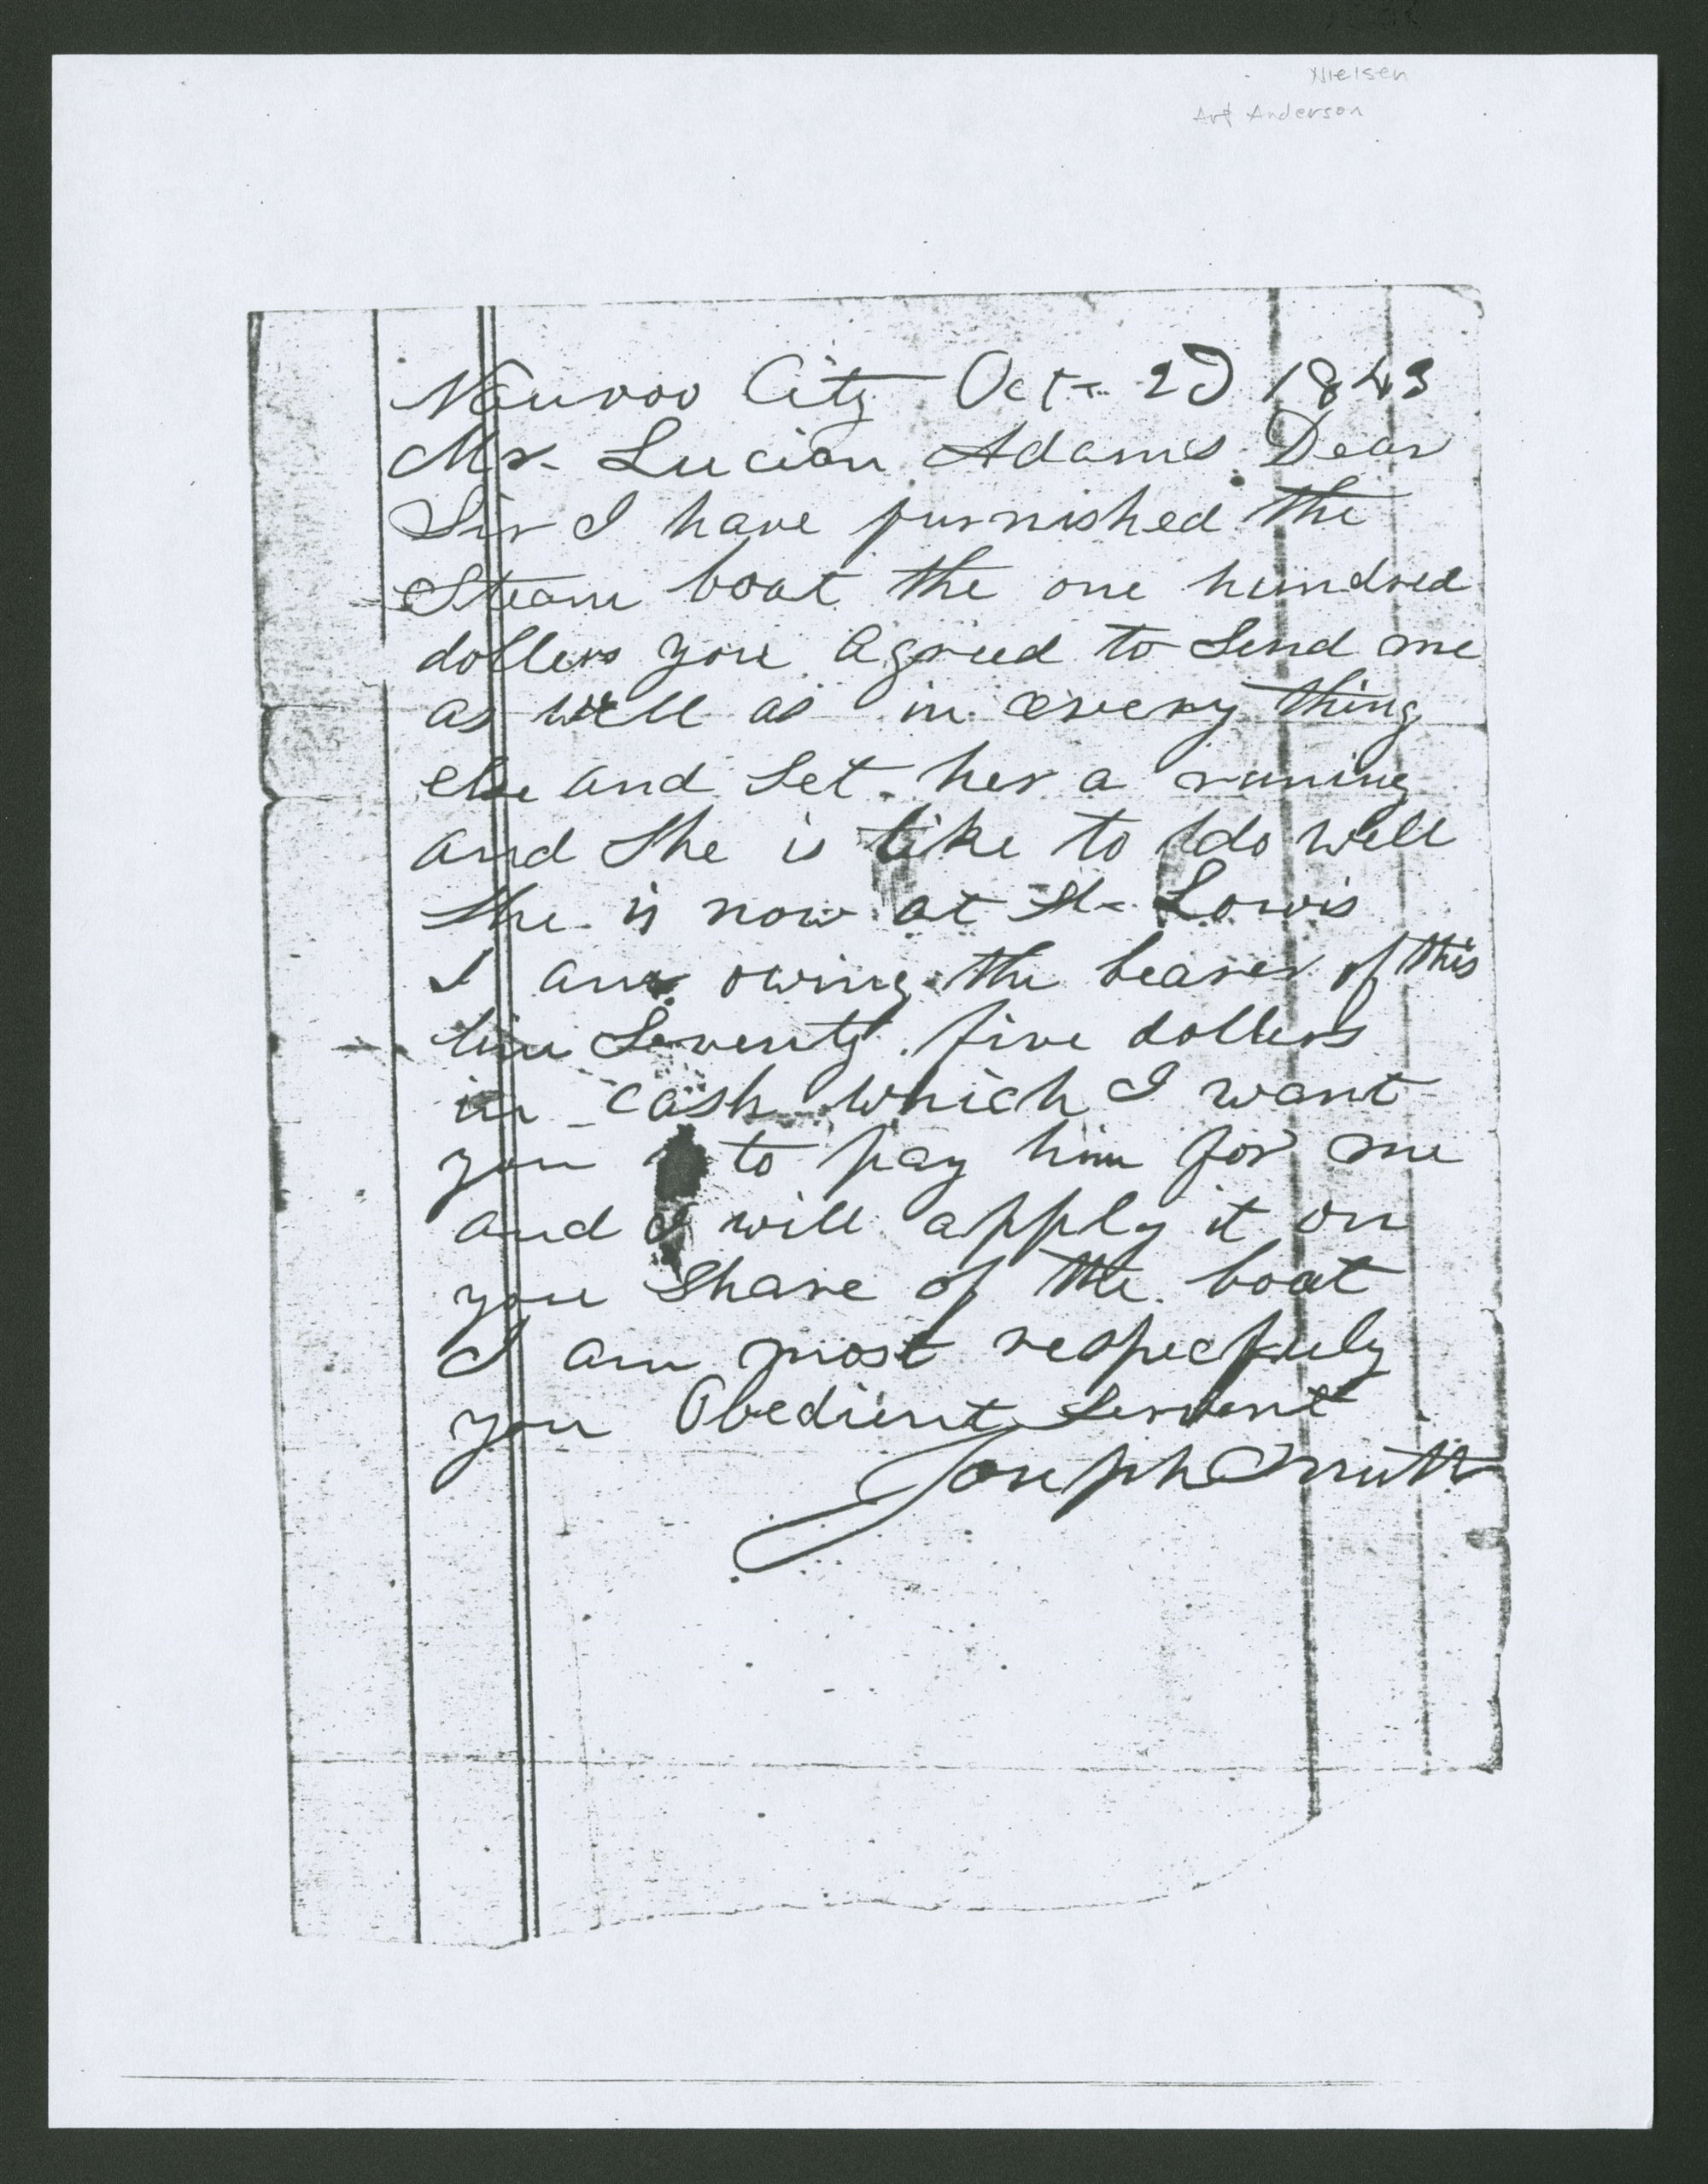 Nielsen
Art Anderson
Nauvoo City Oct- 2D 1843
Mr. Lucian Adams Dear
Sir I have furnished the
Steam boat the one hundred
dollers you agreed to Send me
as well as in every thing
else and Set her a runing
and She is like to do well
She is now at St- Lowis
I am owing the bearer of this
line Seventy five dollers
in cash which I want
you to pay him for me
and I will apply it on
you Share of the boat
I am most respecfuly
you Obedient Servent
Joseph Smith